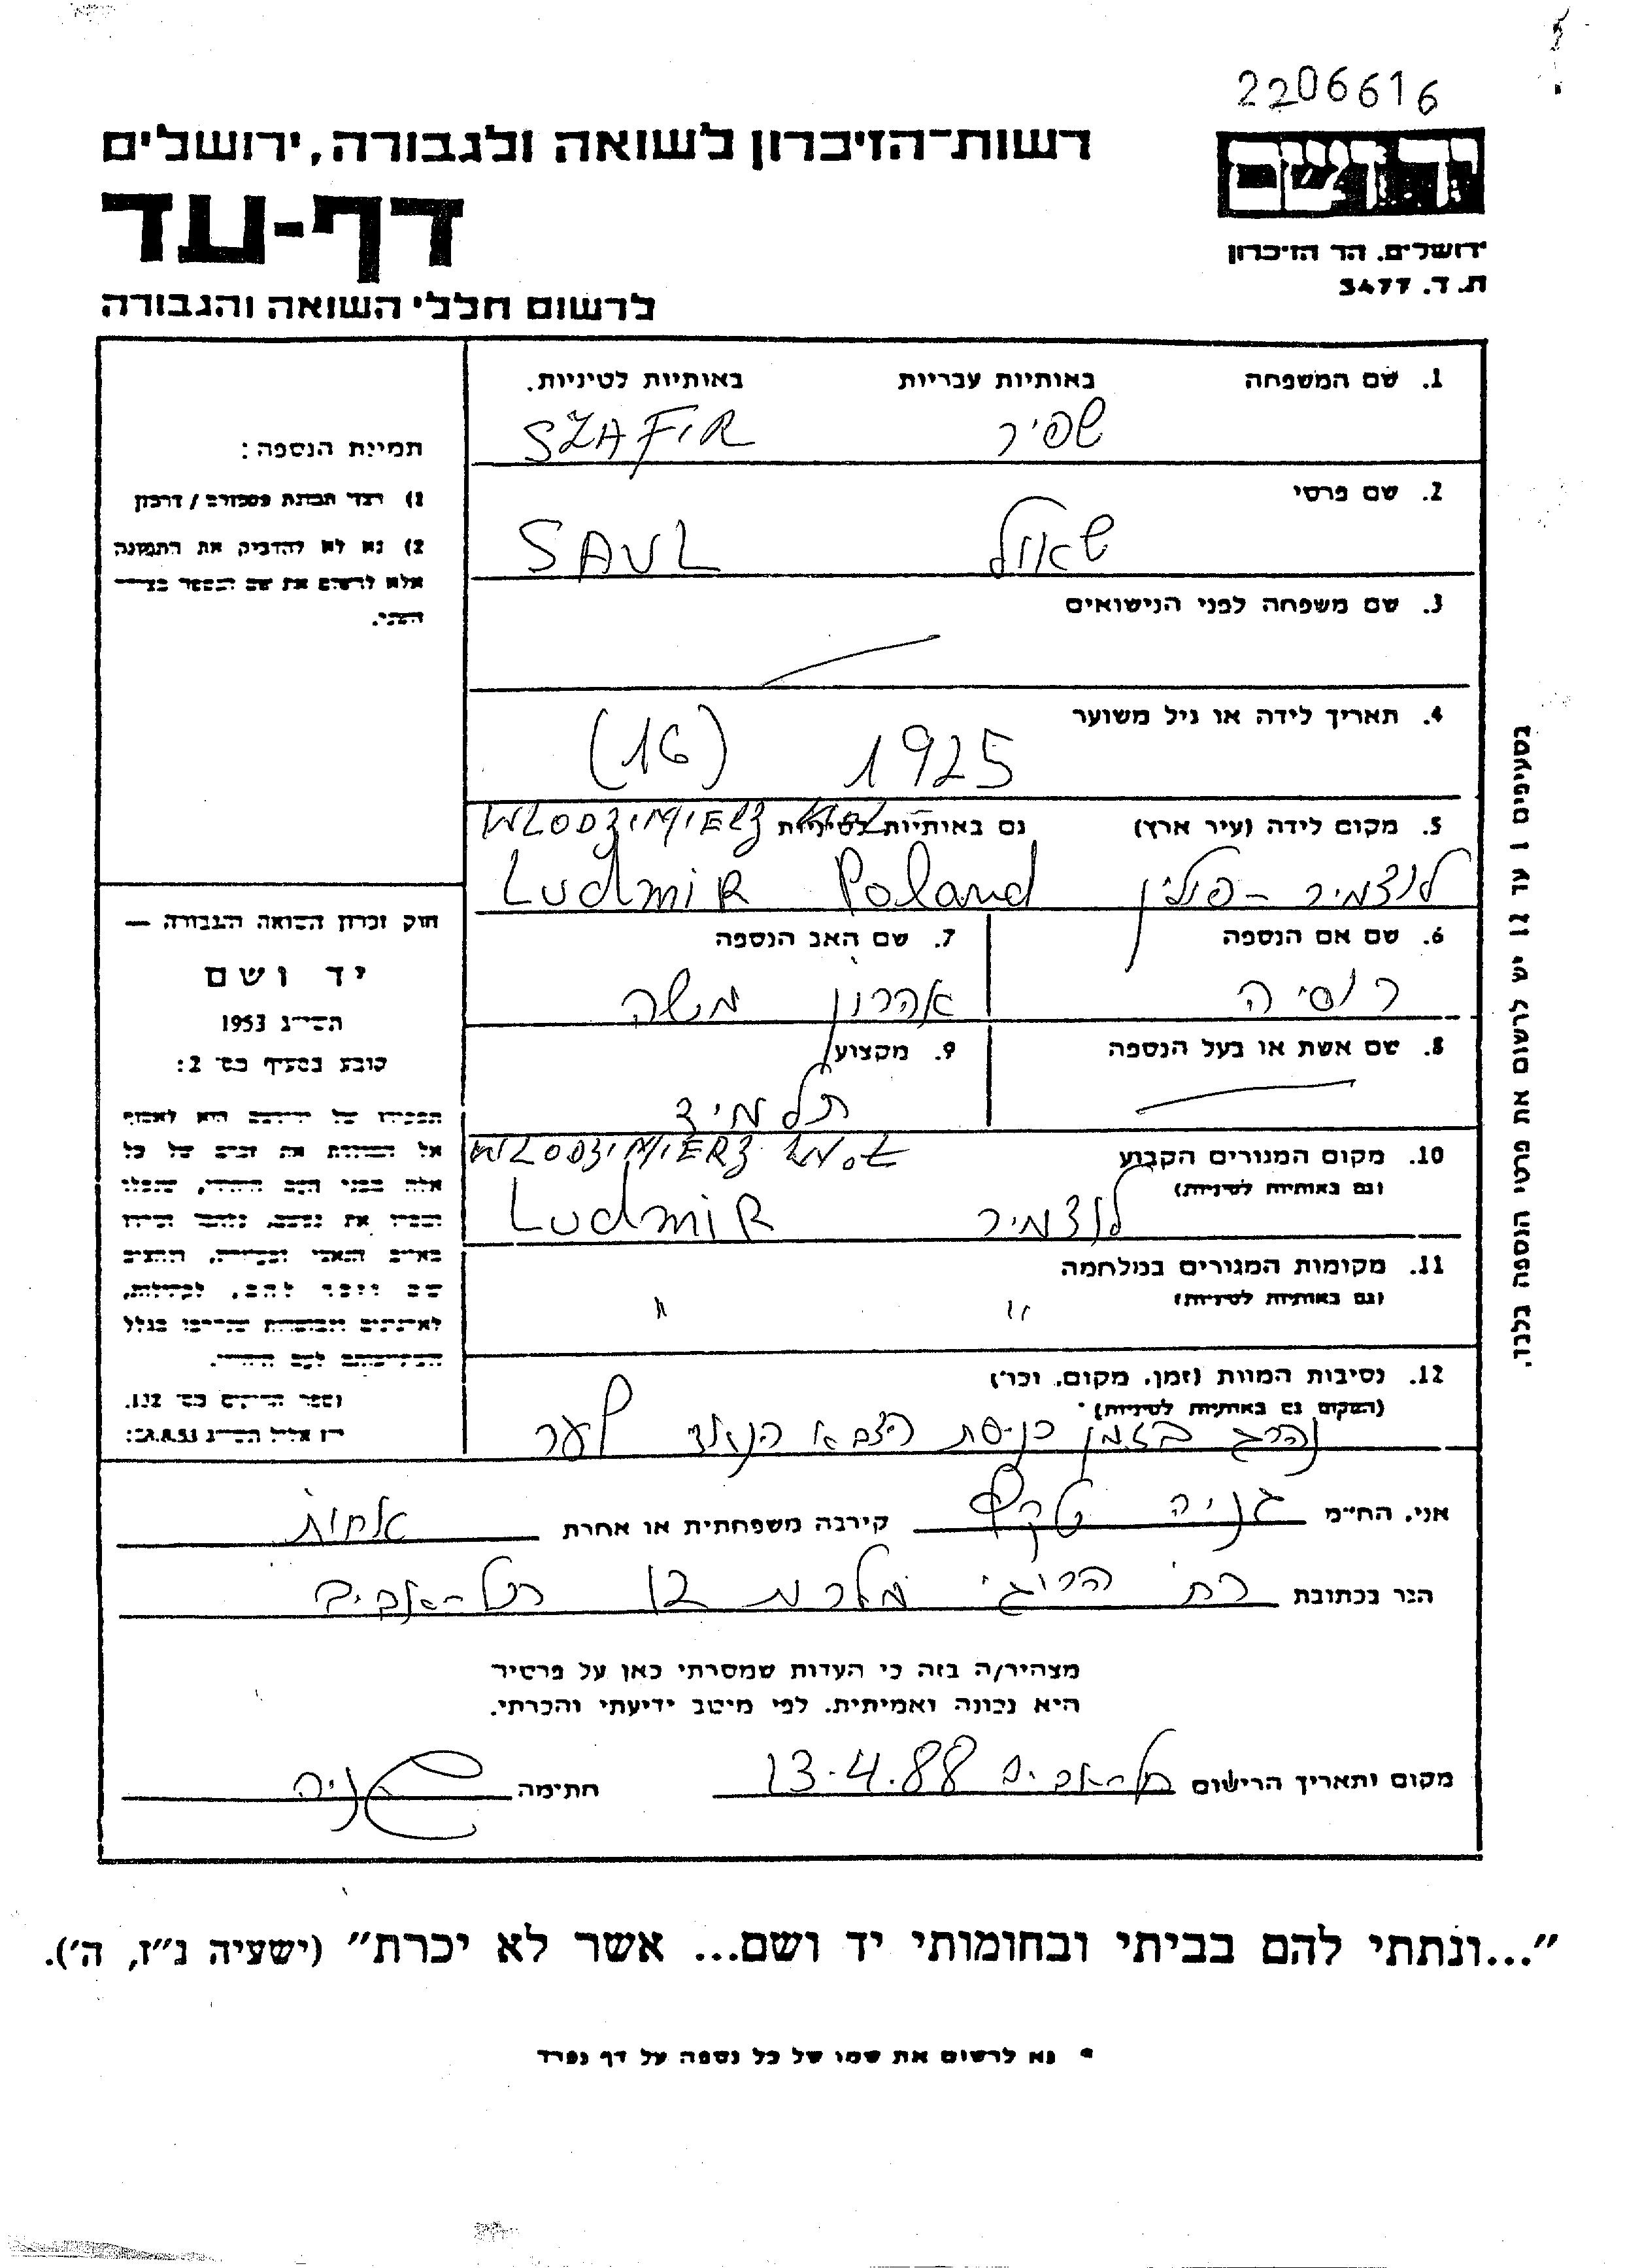 2206616
רשות־הזיכרון לשואה ולגבורה, ירושלים
יד ושם
דף-עד
ירושלים. הר הזיכרון
ת. ד. 3477
לרשום חללי השואה והגבורה
1. שם המשפחה באותיות עבריות באותיות לטיניות.
שפיר SZAFIR
2. שם פרטי
שאול SAUL
3. שם משפחה לפני הנישואים
4. תאריך לידה או גיל משוער
1925 (16)
5. מקום לידה (עיר ארץ) גם באותיות לטיניות WLODZIMIERZ
לודמיר - פולין Ludmir Poland
6. שם אם הנספה
רוסיה
7. שם האב הנספה
אהרון משה
8. שם אשת או בעל הנספה
9. מקצוע
תלמיד
10. מקום המגורים הקבוע WLODZIMIERZ
(גם באותיות לטיניות)
לודמיר Ludmir
11. מקומות המגורים במלחמה
(גם באותיות לטיניות)
" "
12. נסיבות המוות (זמן, מקום, וכו')
(המקום גם באותיות לטיניות)
נהרג בזמן כניסת הצבא הנאצי לעיר
תמונת הנספה:
1) רצוי תמונת פספורט / דרכון
2) נא לא להדביק את התמונה
אלא לרשום את שם הנספה בצידה
השני.
חוק זכרון השואה והגבורה —
יד ושם
תשי״ג 1953
קובע בסעיף מס׳ 2:
תפקידו של יד ושם הוא לאסוף
אל המולדת את זכרם של כל
אלה מבני העם היהודי, שנפלו
ומסרו את נפשם, נלחמו ומרדו
באויב הנאצי ובעוזריו, ולהציב
שם וזכר להם, לקהילות,
לארגונים ולמוסדות שנחרבו בגלל
השתייכותם לעם היהודי.
(ספר החוקים מס׳ 132,
י״ז אלול תשי״ג 28.8.53)
בסעיפים 1 עד 12 יש לרשום את פרטי הנספה בלבד.
אני, הח״מ גניה קירבה משפחתית או אחרת אחות
הגר בכתובת רח' הרוגי מלכות 12 תל-אביב
מצהיר/ה בזה כי העדות שמסרתי כאן על פרטיה
היא נכונה ואמיתית. לפי מיטב ידיעתי והכרתי.
מקום ותאריך הרישום תל-אביב 13.4.88 חתימה
"...ונתתי להם בביתי ובחומותי יד ושם... אשר לא יכרת" (ישעיה נ"ז, ה').
* נא לרשום את שמו של כל נספה על דף נפרד